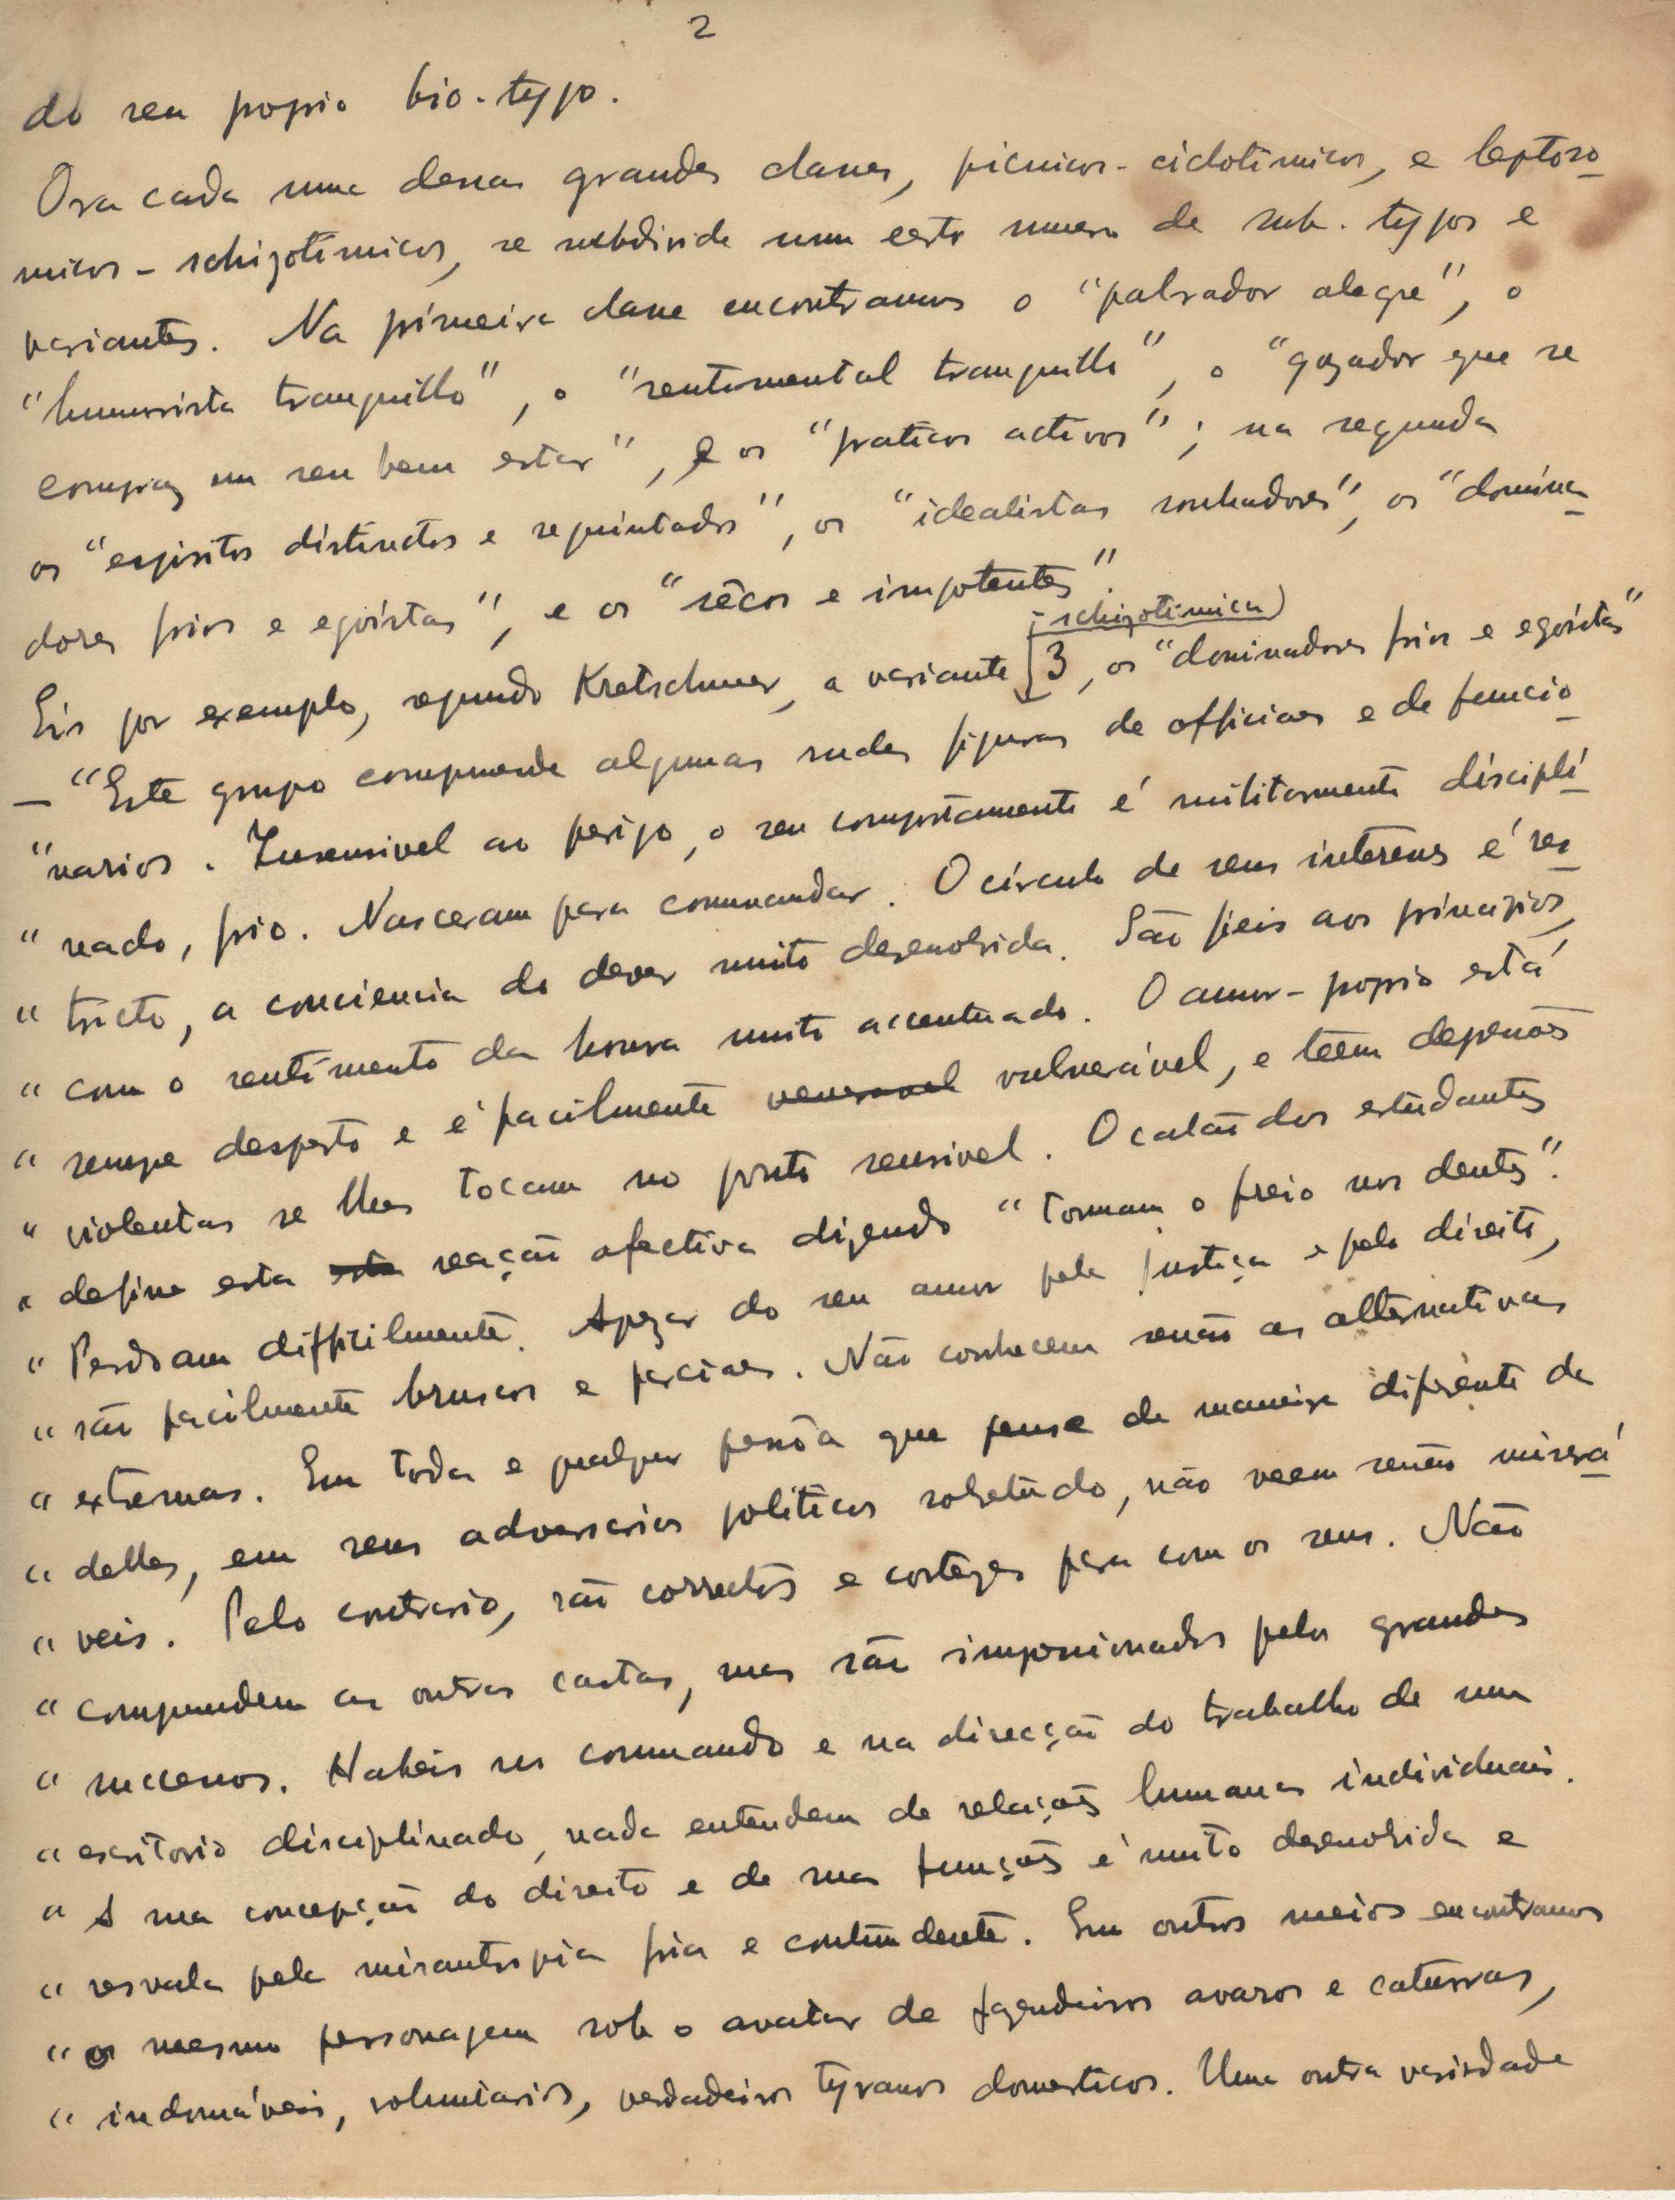 2
do seu proprio bio-typo.
Ora cada uma dessas grandes classes, picnicos-ciclotimicos, e leptoso
micos-schizotimicos, se subdivide num certo numero de sub-typos e
variantes. Na primeira classe encontramos o "palrador alegre", o
"humorista tranquillo", o "sentimental tranquillo", o "gozador que se
compraz em seu bem estar", e os "praticos activos"; na segunda
os "espiritos distinctos e requintados", os "idealistas sonhadores", os "domina
dores frios e egoístas", e os "sêcos e impotentes".
- schizotimica)
Eis por exemplo, segundo Kretschmer, a variante 3, os "dominadores frios e egoístas"
— "Este grupo comprehende algumas rudes figuras de officiaes e de funccio
"narios. Insensivel ao perigo, o seu comportamento é militarmente discipli
" nado, frio. Nasceram para commandar. O círculo de seus interesses é res
" tricto, a conciencia do dever muito desenvolvida. São fieis aos principios,
" com o sentimento da honra muito accentuado. O amor-proprio está
" sempre desperto e é facilmente veneravel vulnerável, e têem depressões
" violentas se lhes tocam no ponto sensivel. O calão dos estudantes
" define esta esta reação afectiva dizendo "tomam o freio nos dentes".
" Perdoam difficilmente. Apezar do seu amor pela justiça e pelo direito,
" são facilmente bruscos e parciaes. Não conhecem senão as alternativas
" extremas. Em toda e qualquer pessôa que pense de maneira diferente da
" delles, em seus adversarios politicos sobretudo, não veem senão miserá
" veis. Pelo contrario, são correctos e cortezes para com os seus. Não
" comprendem as outras castas, mas são impressionados pelos grandes
" successos. Habeis no commando e na direcção do trabalho de um
" escritorio disciplinado, nada entendem de relações humanas individuais.
" A sua concepção do direito e de suas funções é muito desenvolvida e
" resvala pela misantropia fria e contundente. Em outros meios encontramos
" o mesmo personagem sob o avatar de fazendeiros avaros e caturras,
" indomáveis, voluntarios, verdadeiros tyranos domesticos. Uma outra variedade